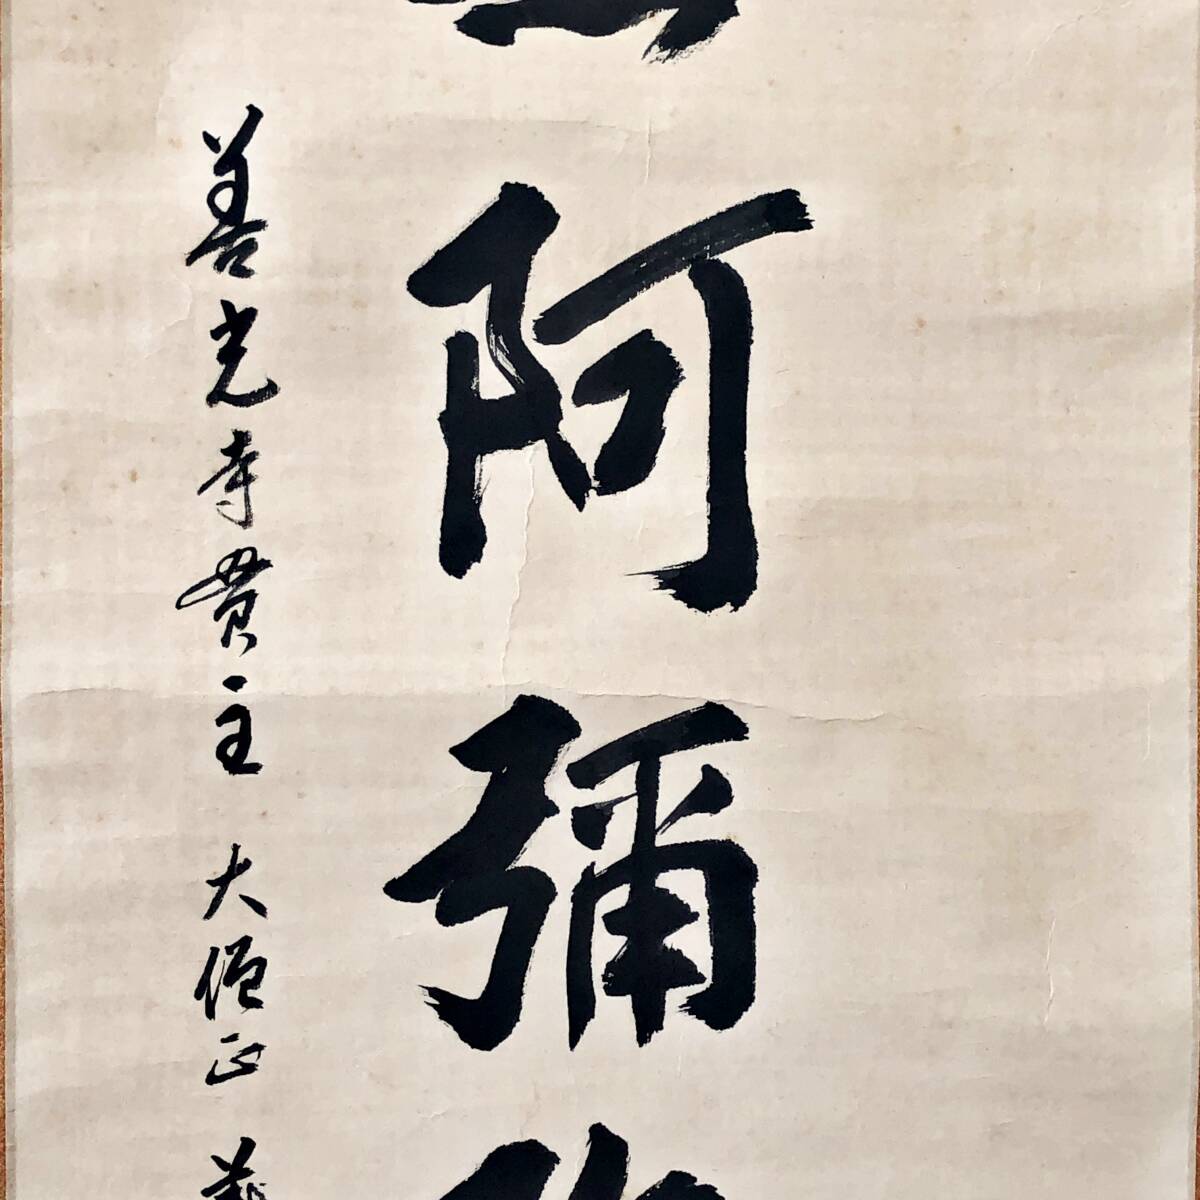 阿彌
善光寺貫主 大僧正